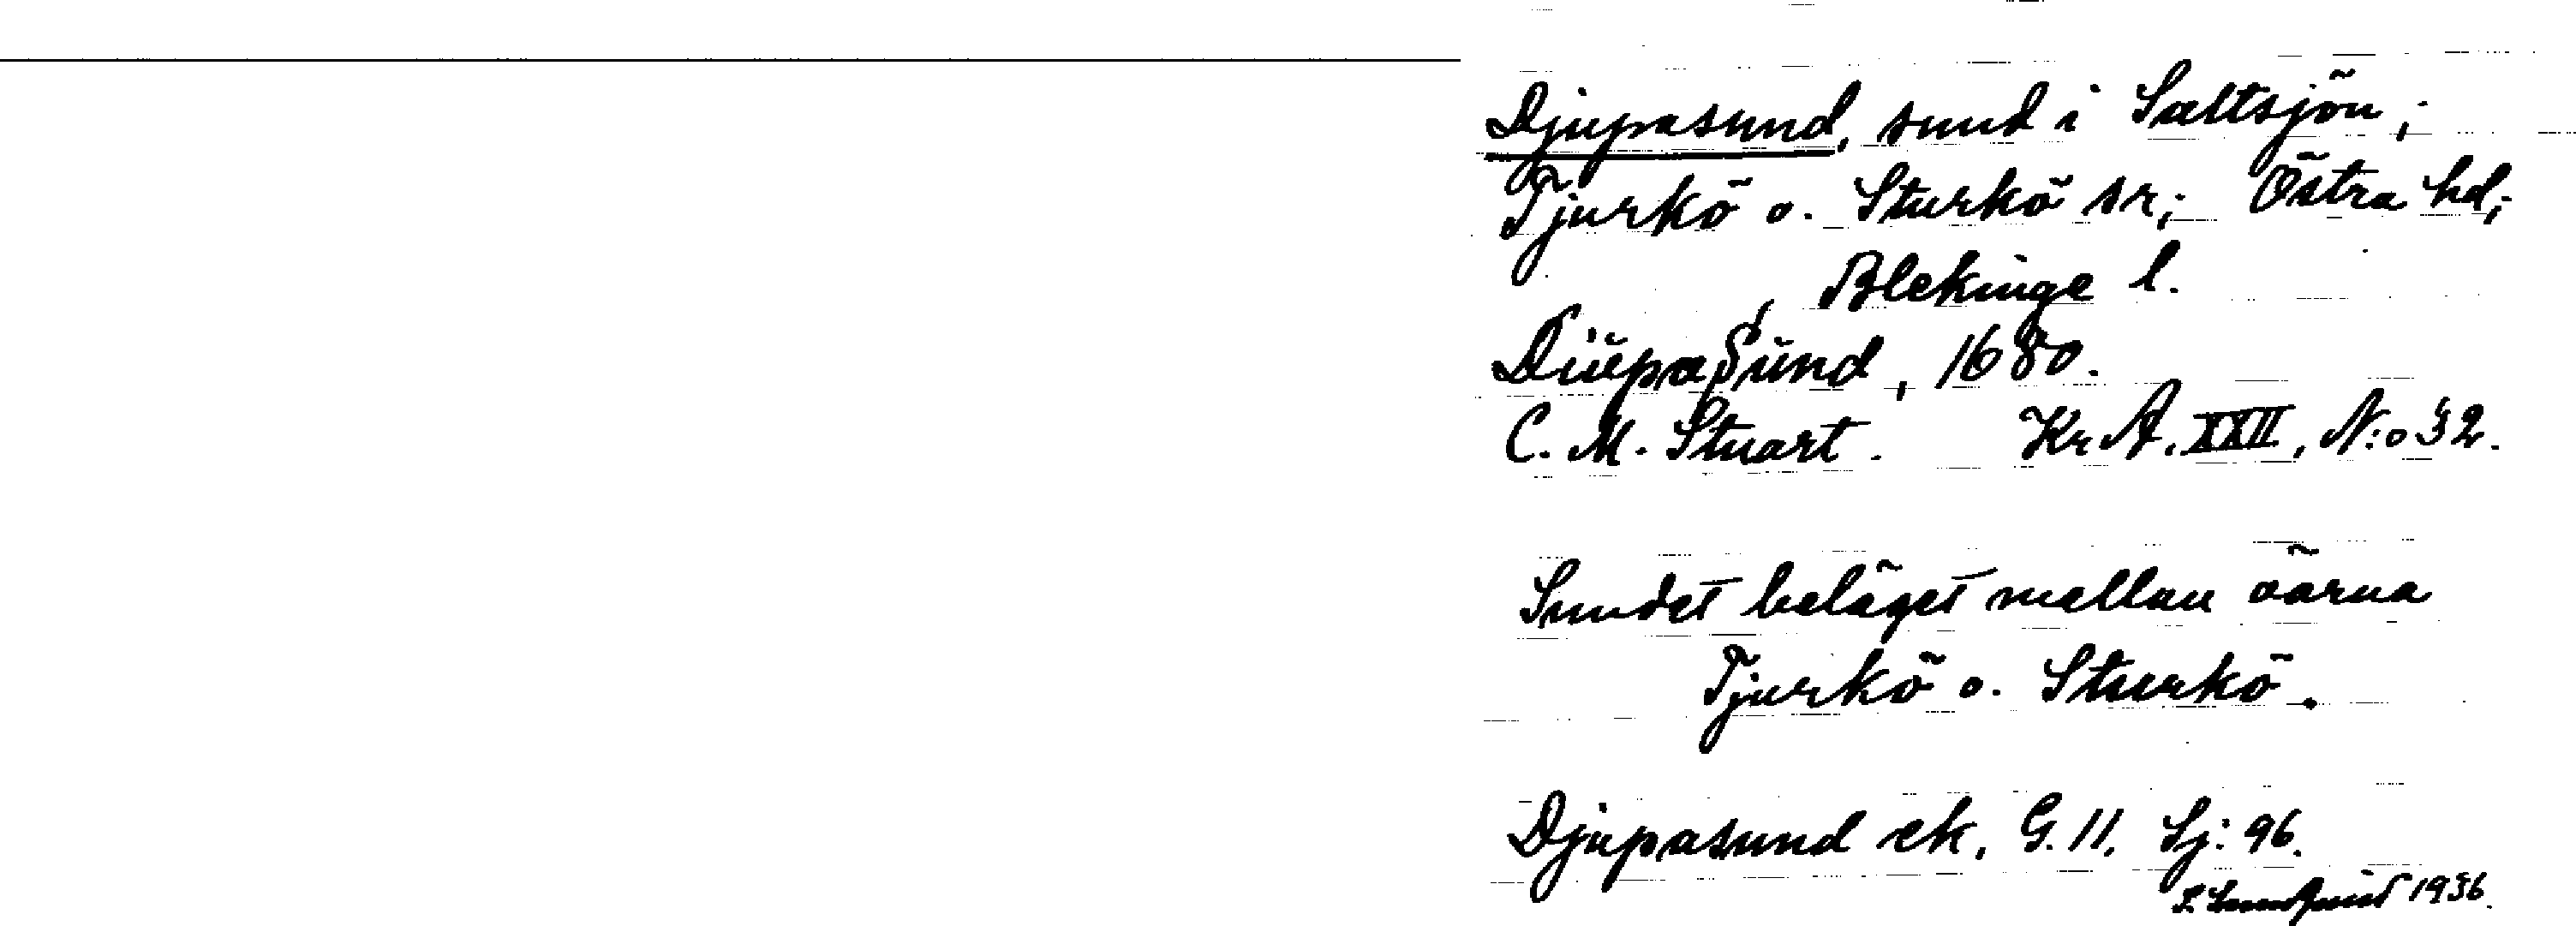 Djupasund, sund i Saltsjön;
Tjurkö o. Sturkö sr; Östra hd;
Blekinge l.
Diŭpa Sŭnd, 1680.
C. M. Stuart. Kr A. XXII, N:o 32.
Sundet beläget mellan öarna
Tjurkö o. Sturkö.
Djupasund ek. G. 11. Sj: 96.
1936.